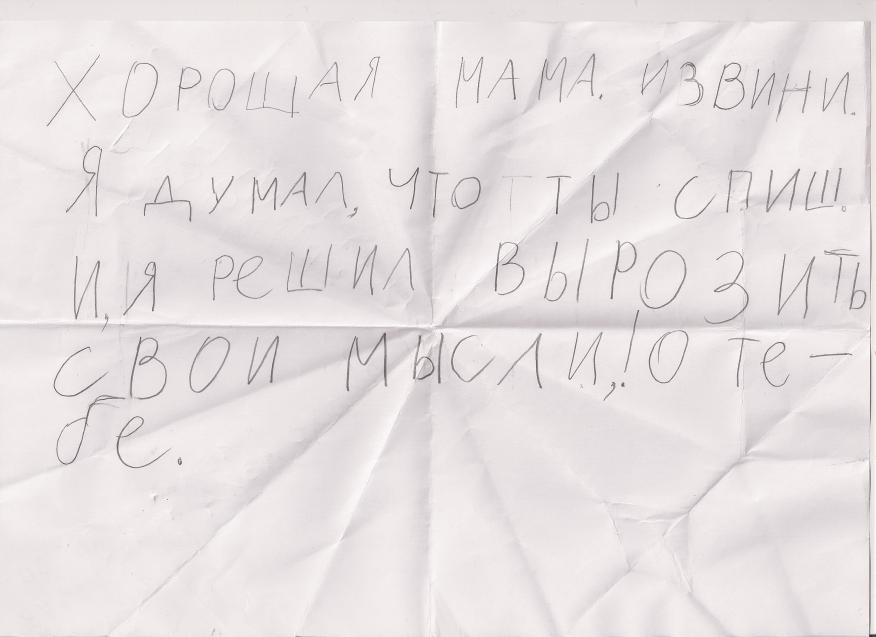 ХОРОШАЯ МАМА. ИЗВИНИ.
Я ДУМАЛ, ЧТО ТЫ СПИШ.
И, Я РЕШИЛ ВЫРОЗИТЬ
СВОИ МЫСЛИ,! О ТЕ-
БЕ.